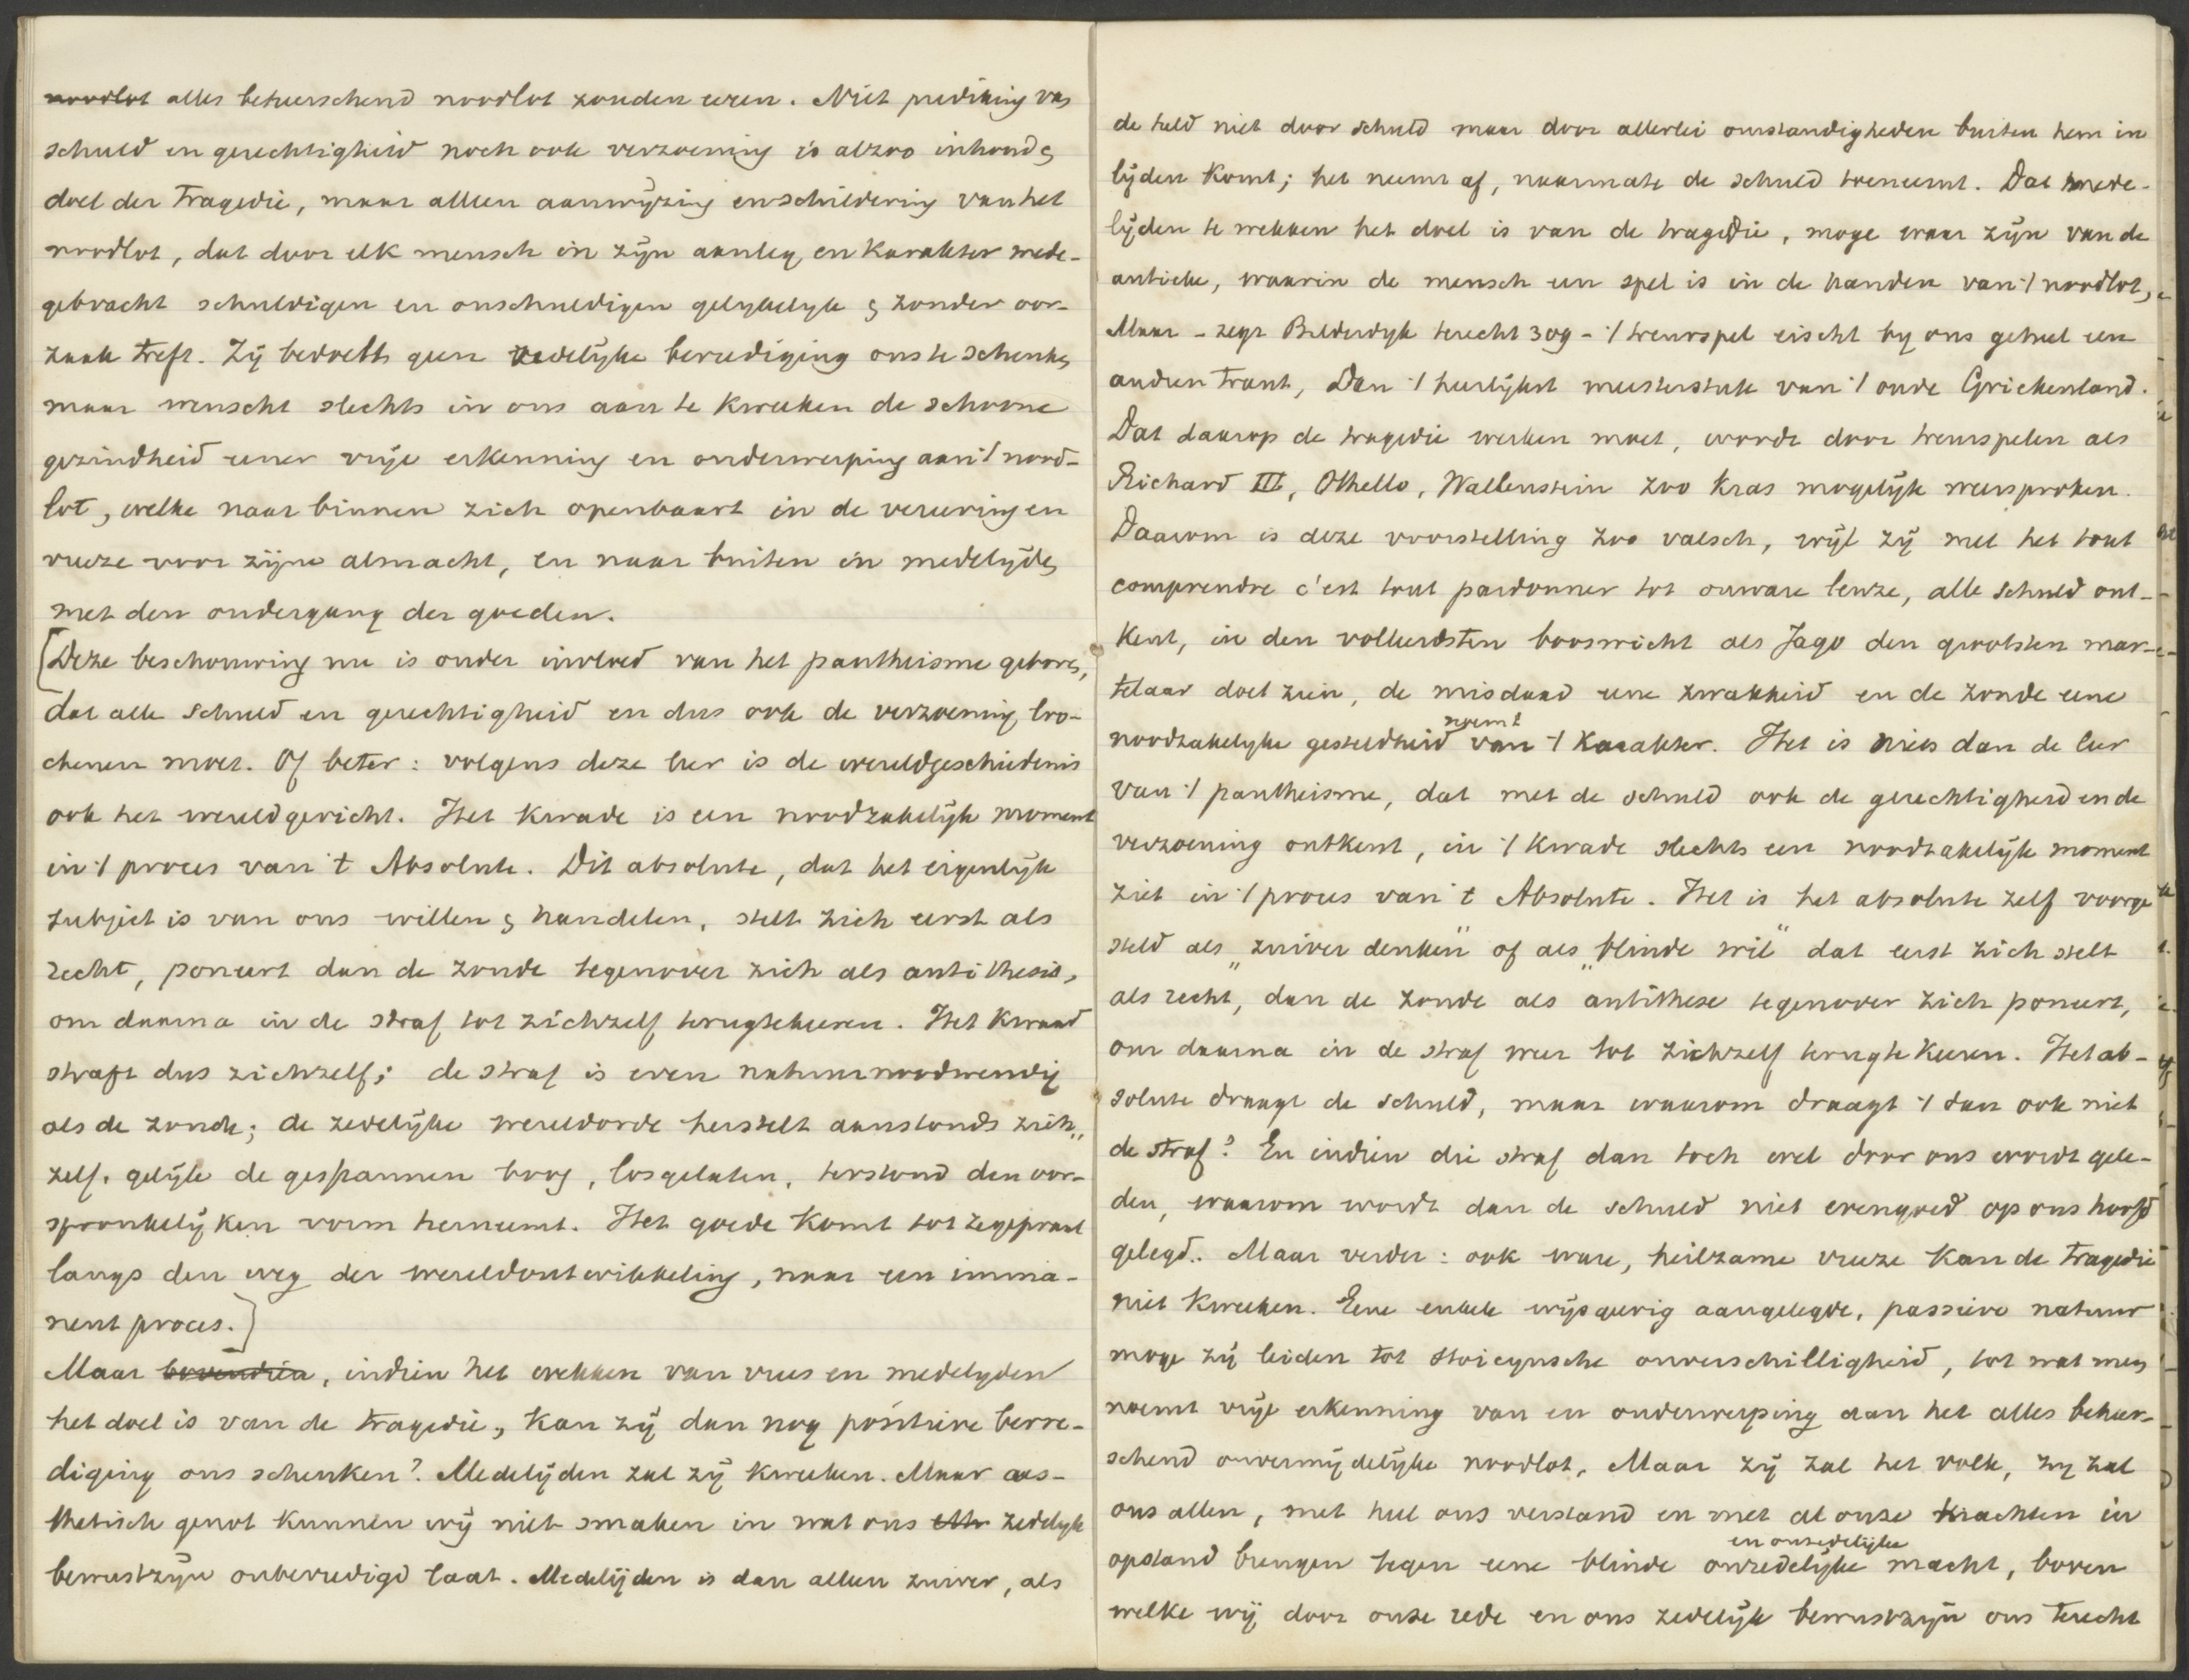 noodlot alles beheerschend noodlot zouden eeren. Niet prediking van
schuld en gerechtigheid noch ook verzoening is alzoo inhoud &
doel der Tragedie, maar alleen aanwijzing en schildering van het
noodlot, dat door elk mensch in zijn aanleg en Karakter mede-
gebracht schuldigen en onschuldigen gelijkelijk & zonder oor-
zaak treft. Zij bedoelt geen zedelijke bevrediging ons te schenken,
maar wenscht slechts in ons aan te kweeken de schoone
gezindheid eener vrije erkenning en onderwerping aan 't nood-
lot, welke naar binnen zich openbaart in de vereering en
vreeze voor zijne almacht, en naar buiten in medelijden
met den ondergang der goeden.
[Deze beschouwing nu is onder invloed van het pantheisme geboren,
dat alle schuld en gerechtigheid en dus ook de verzoening loo-
chenen moet. Of beter: volgens deze leer is de wereldgeschiedenis
ook het wereldgericht. Het Kwade is een noodzakelijk moment
in 't proces van 't Absolute. Dit absolute, dat het eigenlijk
subject is van ons willen & handelen, stelt zich eerst als
recht, poneert dan de zonde tegenover zich als antithesis,
om daarna in de straf tot zichzelf terugtekeeren. Het Kwaad
straft dus zichzelf; de straf is even natuurnoodwendig
als de zonde; de zedelijke wereldorde herstelt aanstonds zich„
zelf. gelijk de gespannen boog, losgelaten, terstond den oor-
spronkelijken vorm herneemt. Het goede Komt tot zegepraal
langs den weg der wereldontwikkeling, naar een imma-
nent proces.]
Maar bovendien, indien het wekken van vrees en medelyden
het doel is van de Tragedie, kan zij dan nog positieve bevre-
diging ons schenken? Medelijden zal zij kweeken. Maar aes-
thetisch genot kunnen wij niet smaken in wat ons eth zedelijk
bewustzijn onbevredigd laat. Medelijden is dan alleen zuiver, als
de held niet door schuld maar door allerlei omstandigheden buiten hem in
lijden komt; het neemt af, naarmate de schuld toeneemt. Dat mede-
lijden te wekken het doel is van de tragedie, moge waar zijn van de
antieke, waarin de mensch een spel is in de handen van 't noodlot,
Maar - zegt Bilderdyk terecht 309 - 't treurspel eischt by ons geheel een
andren trant, Dan 't heerlijkst meesterstuk van 't oude Griekenland.
Dat daarop de tragedie werken moet, wordt door treurspelen als
Richard III, Othello, Wallenstein zoo kras mogelijk weersproken.
Daarom is deze voorstelling zoo valsch, wijl zij met het tout
comprendre c'est tout pardonner tot onware leuze, alle schuld ont-
kent, in den volleerdsten booswicht als Jago den grootsten mar-
telaar doet zien, de misdaad eene zwakheid en de zonde eene
noodzakelyke gesteldheid van 't Karakter. Het is niets dan de leer
noemt
van 't pantheisme, dat met de schuld ook de gerechtigheid en de
verzoening ontkent, in 't kwade slechts een noodzakelijk moment
ziet in 't proces van 't Absolute. Het is het absolute zelf voorge
steld als „zuiver denken" of als „blinde wil" dat eerst zich stelt
als recht, dan de zonde als antithese tegenover zich poneert,
om daarna in de straf weer tot zichzelf terugte keeren. Het ab-
solute draagt de schuld, maar waarom draagt 't dan ook niet
de straf? En indien die straf dan toch wel door ons wordt gele-
den, waarom wordt dan de schuld niet evengoed op ons hoofd
gelegd. Maar verder: ook ware, heilzame vreeze kan de tragedie
niet kweeken. Eene enkele wijsgeerig aangelegde, passieve natuur
moge zij leiden tot stoicynsche onverschilligheid, tot wat men
noemt vrije erkenning van en onderwerping aan het alles beheer-
schend onvermijdelijke noodlot. Maar zij zal het volk, zij zal
ons allen, met heel ons verstand en met al onze krachten in
opstand brengen tegen eene blinde onredelijke macht, boven
en onzedelijke
welke wij door onze rede en ons zedelijk bewustzijn ons terecht